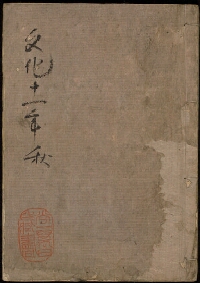 文化十一年秋